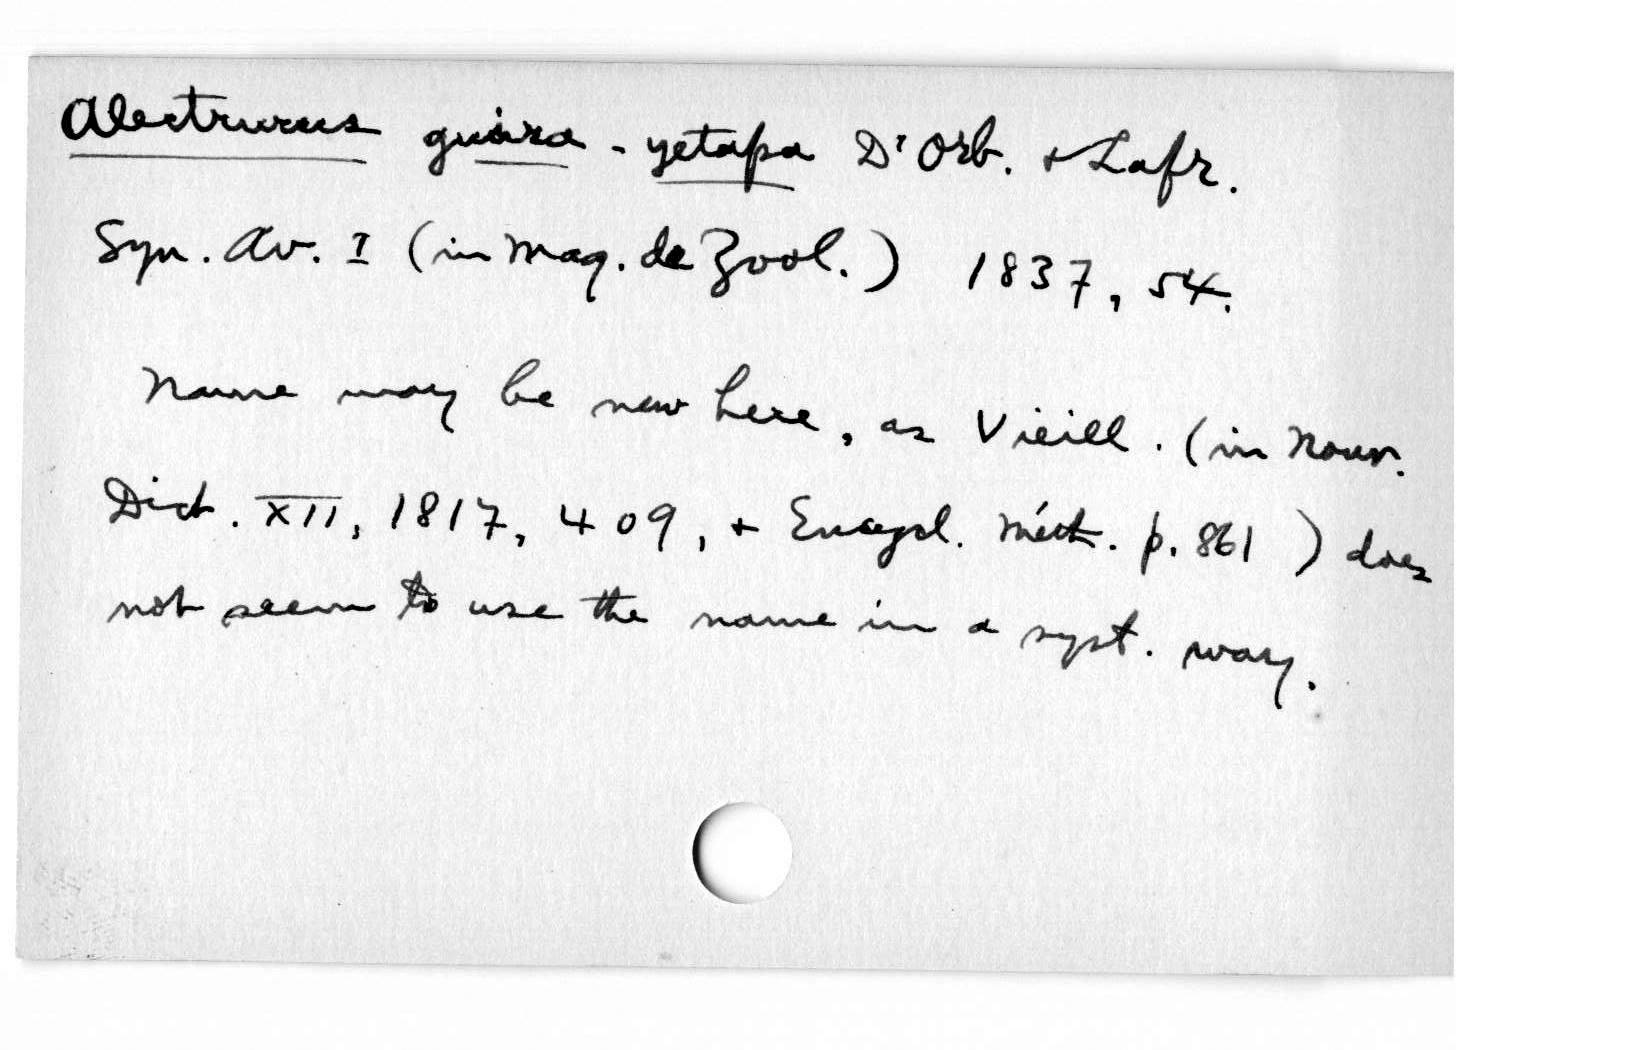 Alectrurus guira-yetapa D'Orb. + Lafr.
Syn. Av. I (in Mag. de Zool.) 1837, 54.
Name may be new here, as Vieill. (in Nouv.
Dict. XII, 1817, 409, + Encycl. Méth. p. 861) does
not seem to use the name in a syst. way.